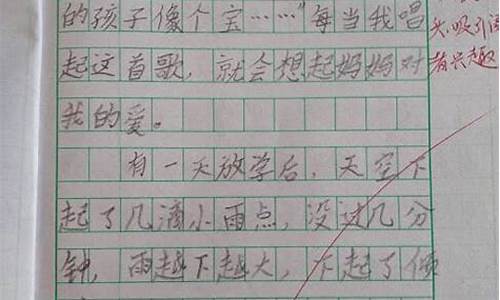 的孩子像个宝……"每当我唱
起这首歌，就会想起妈妈对
我的爱。
有一天放学后，天空下
起了几滴小雨点，没过几分
钟，雨越下越大，下起了倾
头，吸引读
者兴趣